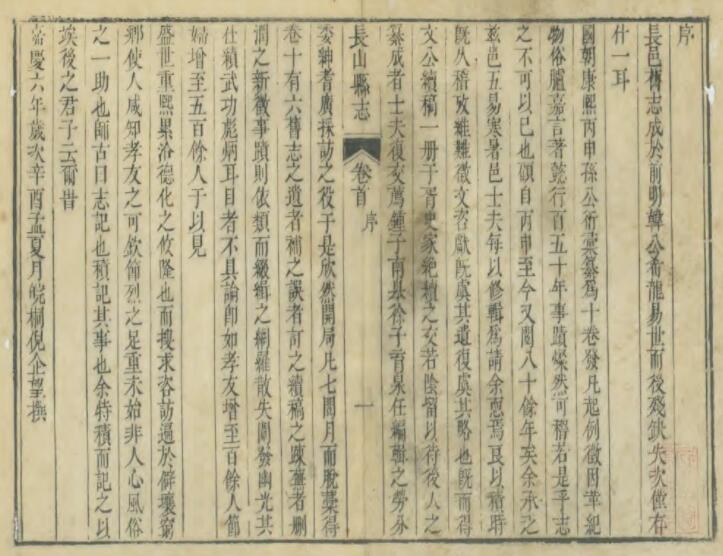 序
長邑舊志成於前明韓公希龍易世而後殘缺失次僅存
什一耳
國朝康熙丙申孫公衍彙纂爲十卷發凡起例徵因革紀
物俗臚嘉言著懿行百五十年事蹟燦然可稽若是乎志
之不可以已也顧自丙申至今又閱八十餘年矣余承乏
兹邑五易寒暑邑士夫每以修輯爲請余恧焉良以積時
既久稽攷維難徵文咨獻既虞其遺復虞其略也既而得
文公續稿一册于胥史家絶積之交若陰留以待後人之
纂成者士夫復交薦鍾子南縣徐子
長山縣志
卷首
序
一
委紳耆廣採訪之役于是欣然開局凡七閱月而脫藁得
卷十有六舊志之遺者補之誤者訂之續稿之踈蕪者刪
潤之新徵事蹟則依類而綴緝之網羅散失闡發幽光其
仕績武功彪炳耳目者不具論卽如孝友增至百餘人節
婦增至五百餘人于以見
盛世重熙累洽德化之攸隆也而搜求咨訪遍於僻壤窮
鄉使人咸知孝友之可欽節烈之足重未始非人心風俗
之一助也師古曰志記也積記其事也余特積而記之以
埃後之君子云爾昔
嘉慶六年歲次辛酉孟夏月皖桐倪企望撰